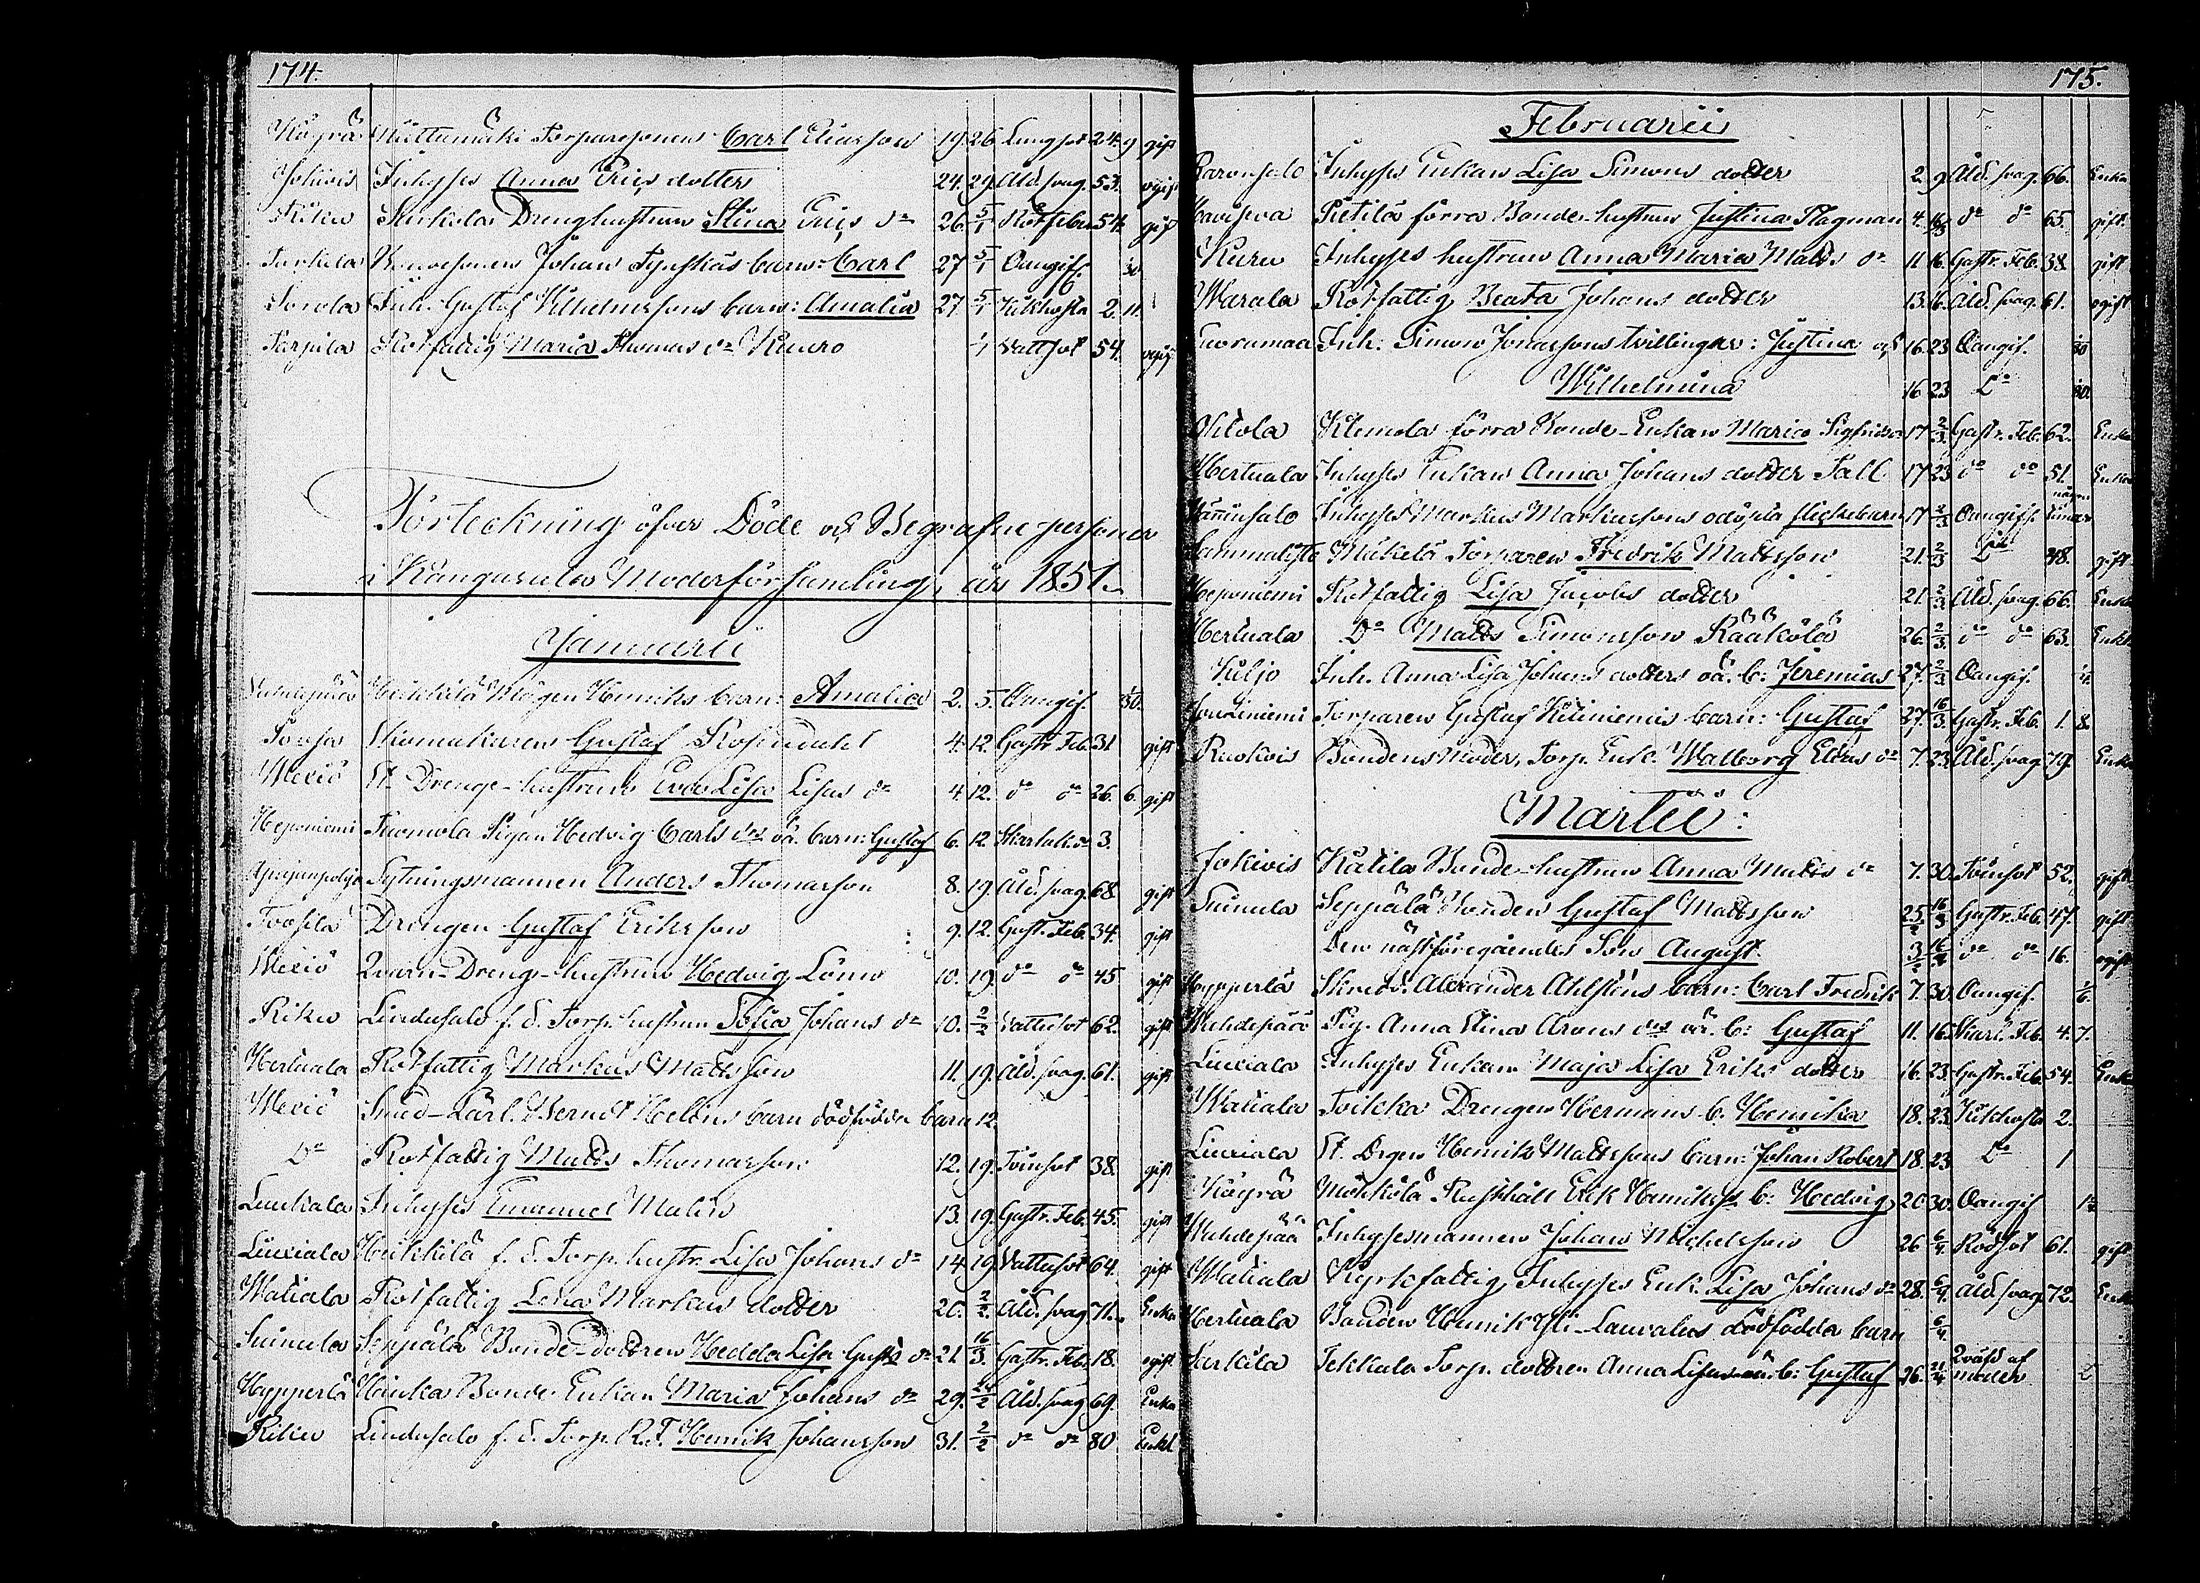 174.
Köyrä Torparesonen Carl Eliasson 19. 26. Lungsot 24. 9 gift
Johivis Inhyses Anna Erics dotter 24. 29. Åld. svag. 53. ogift
Riku Drenghustrun Stina Erics dr 26. 5/1 Rötfeber 54. gift
Sarkila Johan barn: Carl 27 5/1 Oangif. 30
Sorola Inh. Gustaf Wilhelmssons barn: Amalia 27. 5/1 Kikhosta 2. 11.
Tarpila Rotfattig Maria Thomas dr Kuuro Vattsot 54. ogift
Förteckning öfver Döde och Begrafne personer
i Kangasala Moderförsamling, år 1851.
Januarii
Heikkilä Pigan Henriks barn: Amalia 2. 5. Oangif. 30.
Sorsa Skomakaren Gustaf Rosendahl 4. 12. Gastr. Feb. 31 gift
Wexiö St. Drenge-hustrun Eva Lisa Lisas dr 4. 12. do do 26. 6. gift
Heponiemi Tuomola Pigan Hedvig Carls drs oä. barn: Gustaf 6. 12 Skarlak. 3.
Sytningsmannen Anders Thomasson 8. 19. Åld. svag. 68. gift
Toosila Drengen Gustaf Eriksson 9. 12. Gastr. Feb. 34. gift
Wexiö Qvarn-Dreng-hustrun Hedvig Löns 10. 19. do do 45 gift
Riku Lindusalo f. d. Torp. hustrun Sofia Johans dr 10. 2/2 Vattusot 62. gift
Hertuala Rotfattig Markus Mattsson 11. 19. Åld. svag. 61. gift
Wexiö Smed-Lärl. Berndt Heléns barn dödfödda barn 12.
Do Rotfattig Matts Thomasson 12. 19. Tvinsot 38. gift
Liukiala Inhyses Emanuel Malin 13. 19. Gastr. Feb. 45. gift
Liuxiala Heikkilä f. d. Torp. hustr. Lisa Johans dr 14. 19. Vattusot 64. gift
Watiala Rotfattig Lena Markus dotter 20. 2/2 Åld. svag. 71. Enka
Suinula Seppälä Bonde-dottren Hedda Lisa Gusts dr 21. 16/3. Gastr. Feb. 18. ogift
Hypperlä Uinka Bonde-Enkan Maria Johans dr 29. Åld. svag 69. Enka
Riku Lindusalo f. d. Torp. R.F. Henrik Johansson 31. 2/2 do do 80 Enkl
175.
Februarii
Raronsalo Inhyses Enkan Lisa Simons dotter 2. 9. Åld. svag. 66. Enka
Havisva Pietilä förra Bonde-hustrun Justina Stagman 4. 16/3 do do 65. gift
Kuru Inhyses hustrun Anna Maria Matts dr 11. 16. Gastr. Feb. 38. gift
Warala Rotfattig Beata Johans dotter 13. 16. Åld. svag. 61. ogift
Suoramaa Inh: Simon Jonassons tvillingar: Justina och 16. 23 Oangif. 30
Wilhelmina 16 23 Do 30.
Vilola Klemola förra Bonde-Enkan Maria Sigfrids dr 17 2/3 Gastr. Feb. 62. Enka
Hertuala Inhyses Enkan Anna Johans dotter Fall 17. 23 do do 51. Enka
Inhyses Markus Markussons odöpta flickebarn 17. 2/3 Oangif. några timar
Mäkelä Torparen Fredrik Mattsson 21. 2/3 Do 48. gift
Heponiemi Rotfattig Lisa Jacobs dotter 21. 2/3 Åld. svag. 66. Enka
Hertuala Do Matts Simonsson Rääkölä 26. 2/3 do do 63. Enkl
Kuljo Inh. Anna Lisa Johans dotters oä. b: Jeremias 27. 2/3 Oangif.
Torparen Gustaf Kiliniemis barn: Gustaf 27. 16/3. Gastr. Feb. 1. 8.
Ruokois Bondens Moder, Torp. Enk. Walborg Elias dr 7. 23. Åld. svag 79. Enka
Martii:
Jokivis Kätilä Bonde-hustrun Anna Matts dr 7. 30. Tvinsot 52. gift
Suinula Seppälä Bonden Gustaf Mattsson 25/2 16/3 Gastr. Feb. 47. gift
Den nästföregåendes Son August. 3/2 do do 16. ogift
Hypperlä Skredd. Alexander Ahlsténs barn: Carl Fredrik 7. 30. Oangif. 6.
Wehdepää Pig. Anna Stina Arons drs oä. b: Gustaf 11. 16. Skarl. Feb. 4. 7.
Liuxiala Inhyses Enkan Maja Lisa Eriks dotter 16. 23. Gastr. Feb. 54. Enka
Watiala Toikka Drengen Hermans b. Henrika 18. 23. Kikhosta 2.
Liuxiala St. Drgen Henrik Mattssons barn: Johan Robert 18. 23 Do 1
Köyrä Mökkölä Rusthåll Erik Henrikss. b: Hedvig 20 30. Oangif
Wehdepää Inhysesmannen Johan Michelsson 26 6/4. Rödsot 61. gift
Watiala Kyrkfattig, Inhyses Enk. Lisa Johans dr 28. 6/4. Åld. svag. 72. Enka
Hertuala Bonden Henrik Yli-Lauralas dödfödda barn 6/4
Sarkila Jekkala Torp. dottren Anna Lisas oä. b: Gustaf 26. 21/4 Qväfd af modern